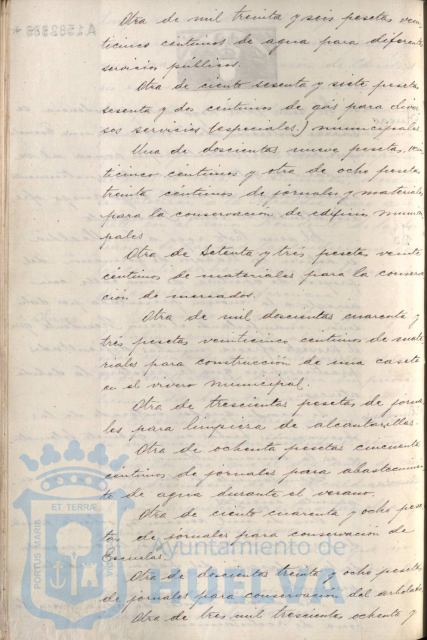 A1582526 *
Otra de mil treinta y seis pesetas vein
ticinco céntimos de agua para diferentes
servicios públicos.
Otra de ciento sesenta y siete pesetas
sesenta y dos céntimos de gas para diver
sos servicios (especiales) municipales
Una de doscientas nueve pesetas, vein
ticinco céntimos y otra de ocho pesetas
treinta céntimos de jornales y materiales
para la conservación de edificios munici
pales
Otra de setenta y tres pesetas veinte
céntimos de materiales para la conserva
ción de mercados.
Otra de mil doscientas cuarenta y
tres pesetas veinticinco céntimos de mate
riales para construcción de una caseta
en el vivero municipal.
Otra de trescientas pesetas de jorna
les para limpieza de alcantarillas.
Otra de ochenta pesetas cincuenta
céntimos de jornales para abastecimien
to de agua durante el verano.
Otra de ciento cuarenta y ocho pese
tas de jornales para conservación de
Escuelas.
Otra de doscientas treinta y ocho pesetas
de jornales para conservación del arbolado
Otra de tres mil trescientas ochenta y
PORTUS MARIS
ET TERRÆ
Ayuntamiento de
HUELVA